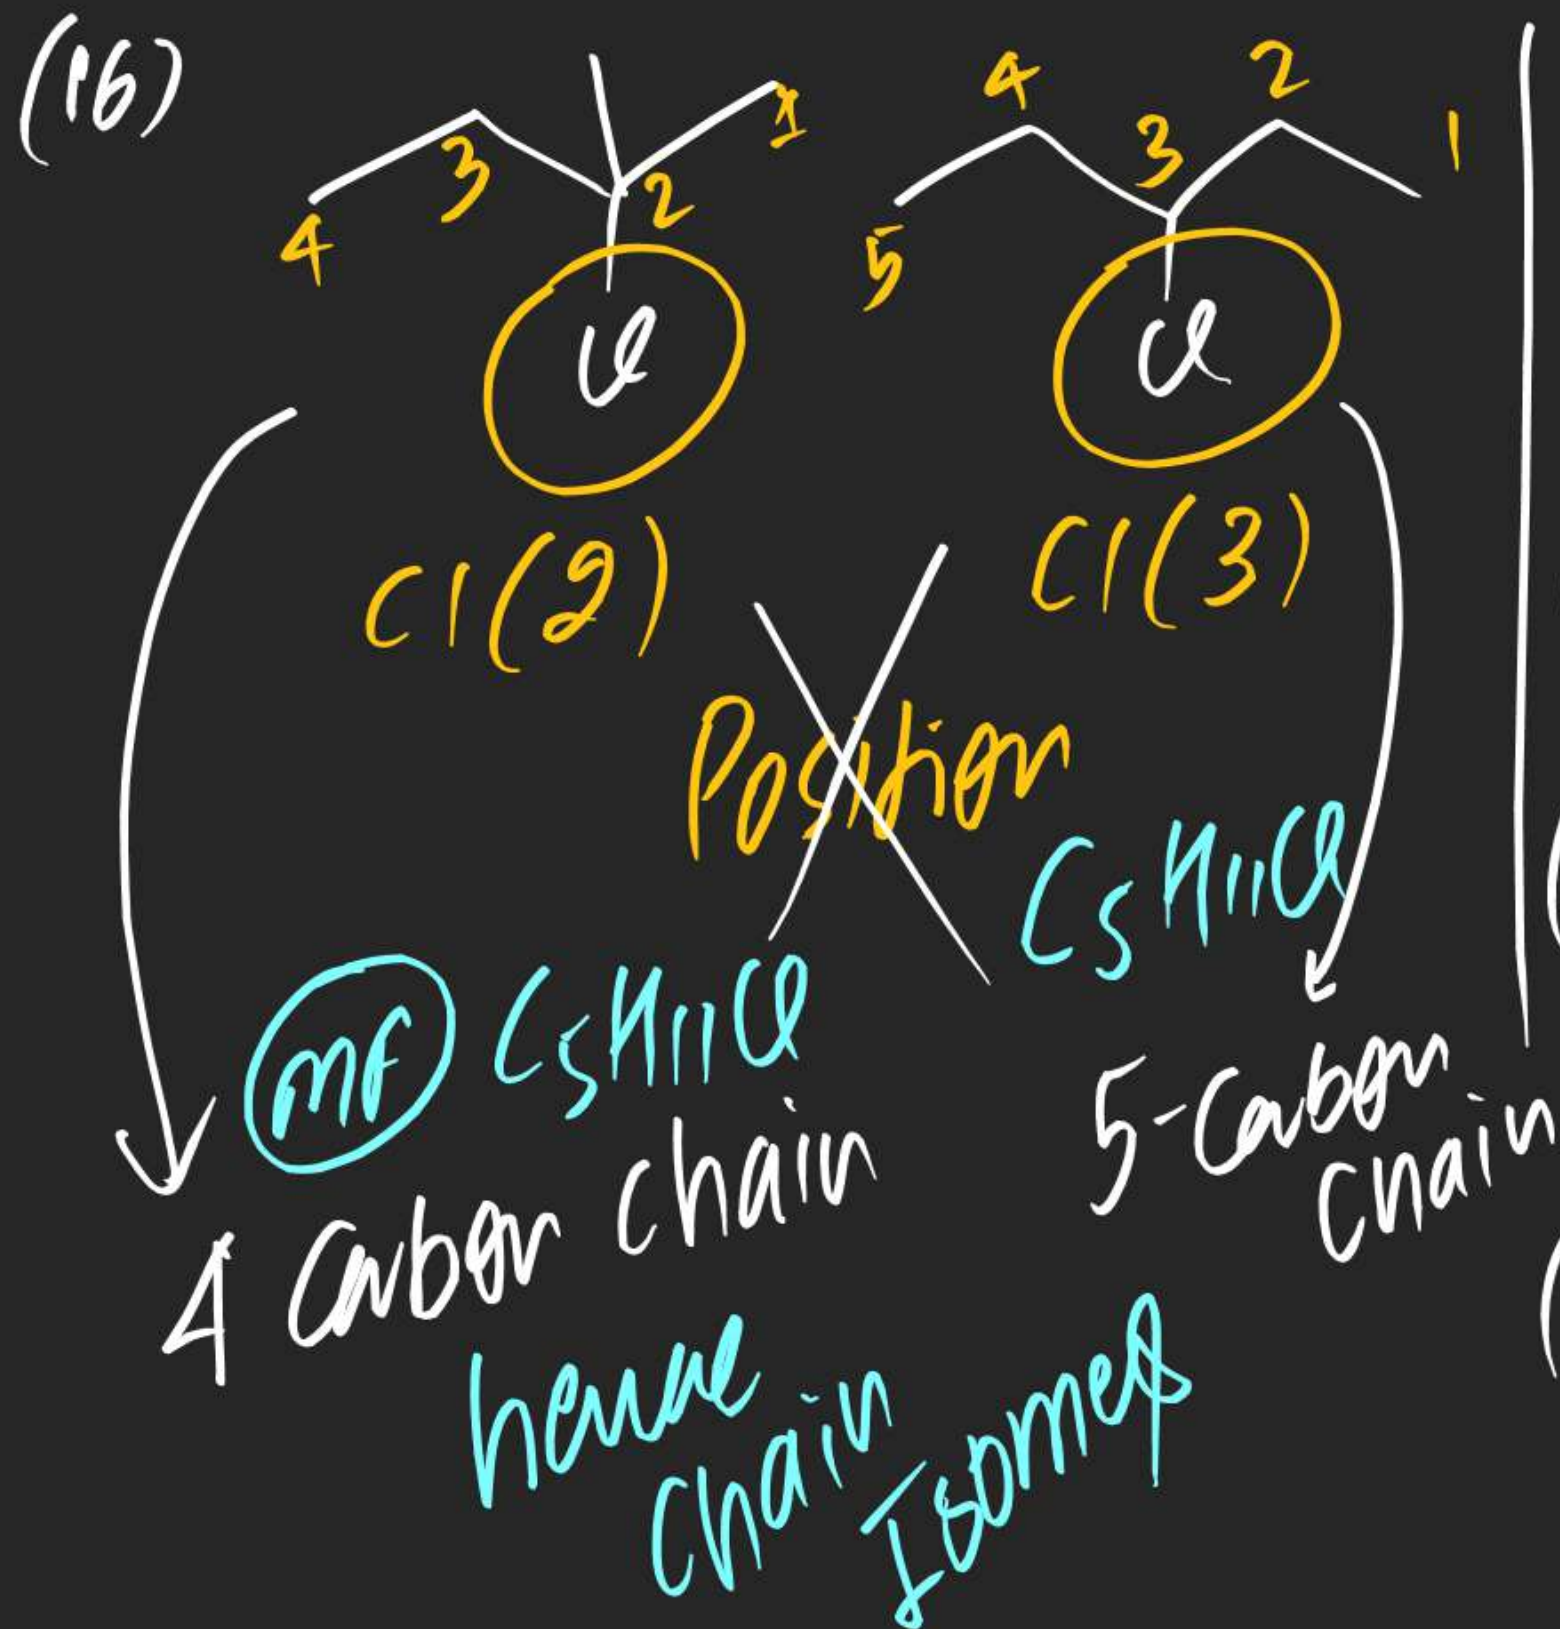 (16)
1
2
3
4
Cl
Cl(2)
1
2
3
4
5
Cl
Cl(3)
Position
MF C5H11Cl
C5H11Cl
4 Carbon chain
5-Carbon
Chain
hence
Chain
Isomers